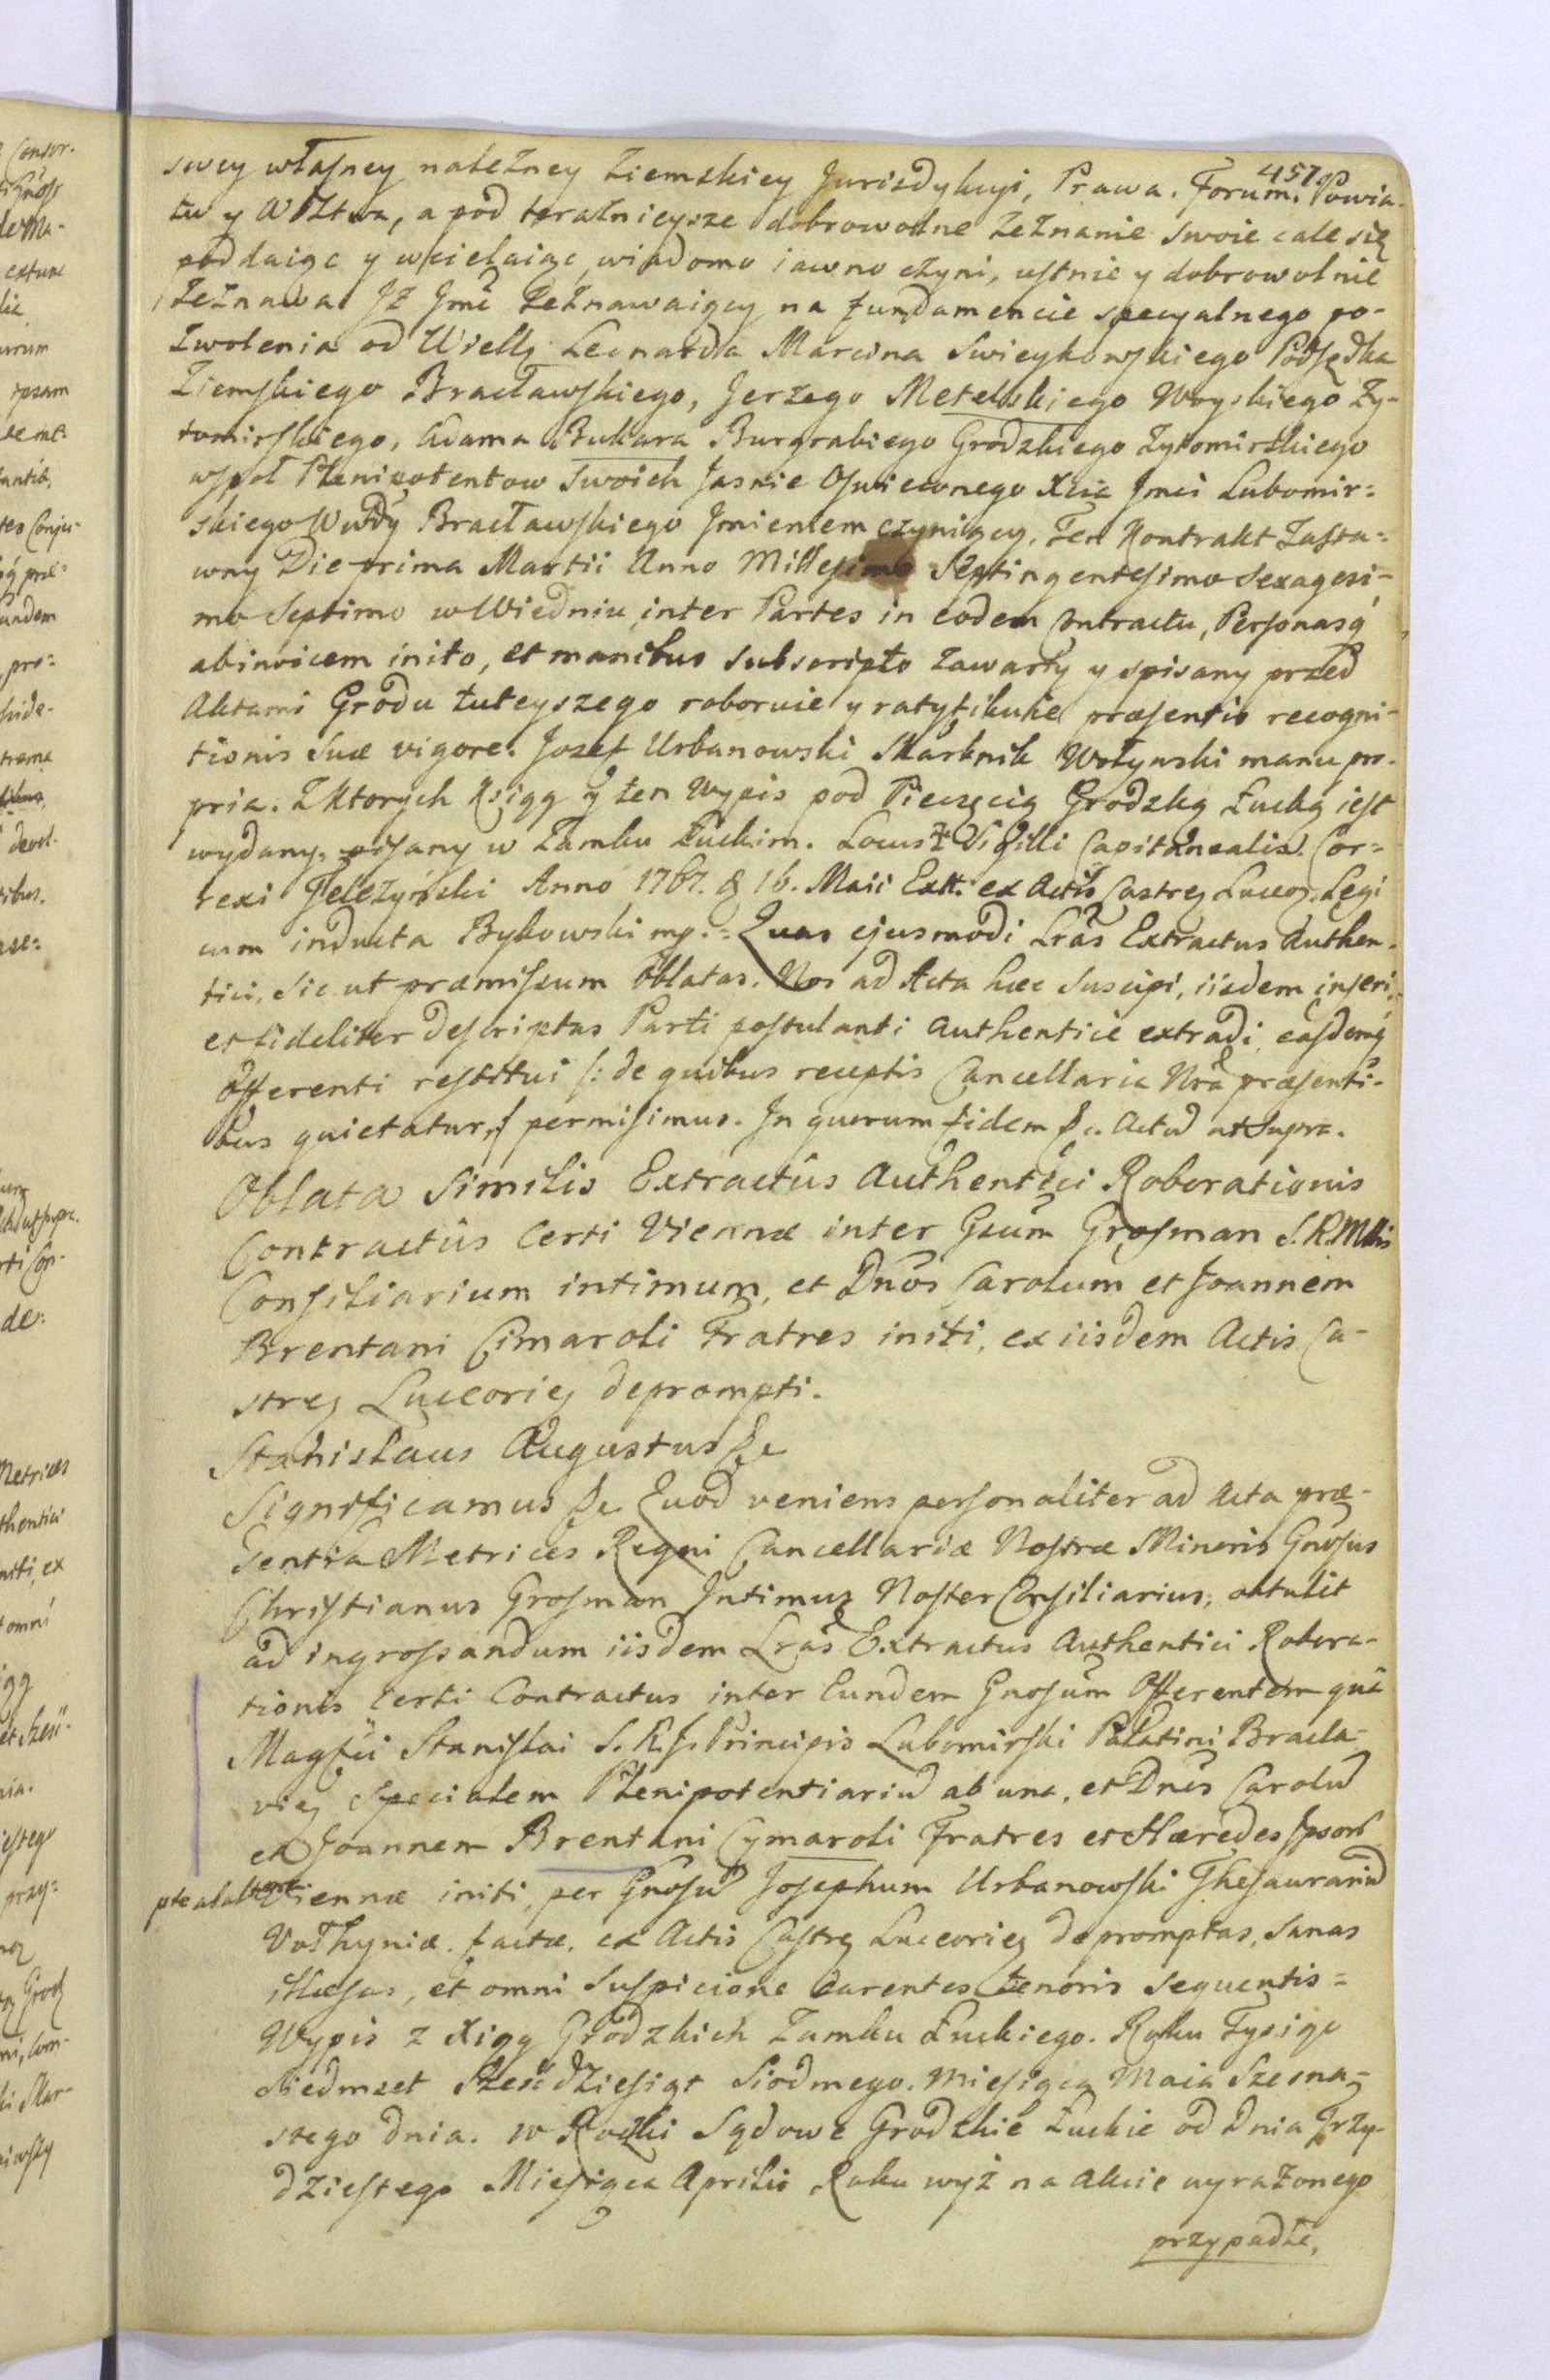 457
swey własney należney Ziemskiey Jurisdykcyi, Prawa. Forum. Powia-
tu y Wdztwa, a pod teraznieysze dobrowolne Zeznanie swoie cale się
poddaiąc y wcielaiąc, wiadomo iawno czyni, ustnie y dobrowolnie
Zeznawa. Jż Jmć Zeznawaiący na fundamencie specyalnego po-
zwolenia od Wielly Leonarda Marcina Swieykowskiego Podsędka
Ziemskiego Bracławskiego, Jerzego Metelskiego Woyskiego Zy-
tomirskiego, Adama Bukara Burgrabiego Grodzkiego Zytomirskiego
wspoł Plenipotentow Swoich Jasnie Oswieconego Xcia Jmci Lubomir=
skiego Wwdy Bracławskiego Jmieniem czyniący, Ten Kontrakt Zasta=
wny Die prima Martii Anno Millesimo Septingentesimo Sexagesi-
mo Septimo w Wiedniu, inter Partes in eodem Contractu, Personasq
abinvicem inito, et manibus subscripto zawarty y spisany przed
Aktami Grodu tuteyszego roboruie y ratyfikuie præsentis recogni-
tionis Suæ vigore. Jozef Urbanowski Skarbnik Wołynski manu pro-
pria. Z Ktorych Xsiąg y ten Wypis pod Pieczęcią Grodzką Łucką iest
wydany, pisany w Zamku Łuckim. Locus Sigilli Capitanealis. Cor=
rexi Anno 1767. d 16. Maii Extt. ex Actis Castreŋ Lucceoŋ. Legi
cum inducta Bykowski mp.= Quas ejusmodi Lrãs Extractus Authen-
tici, Sic ut præmissum Oblatas, Nos ad Acta hæc suscipi, iisdem inseri,
et fideliter descriptas Parti postulanti authentice extradi, easdemq
Offerenti restitui /: de quibus receptis Cancellaria Nrã præsenti-
bus quietatur,:/ permisimus. In quorum fidem &c. Actũ ut Supra.
Oblata Similis Extractûs Authentici Roborationis
Contractûs Certi Viennæ inter Gsum Grosman S.R.Mttis
Consiliarium intimum, et Dnõs Carolum et Joannem
Brentani Cimaroli Fratres initi, ex iisdem Actis Ca-
streŋ Lucceorieŋ deprompti.
Stanislaus Augustus &c
Significamus &c Quod veniens personaliter ad Acta præ-
sentia Metrices Regni Cancellariæ Nostræ Minoris Gnosus
Christianus Grosman Intimus Noster Consiliarius, obtulit
ad ingrossandum iisdem Lrãs Extractus Authentici Robora-
tionis Certi Contractus inter Eundem Gnosum Offerentem quà
Magfici Stanislai S. R. J. Principis Lubomirski Palatini Bracla-
vieŋ Specialem Plenipotentiariũ ab una, et Dnõs Carolũ
et Joannem Brentani Cymaroli Fratres et Hæredes Ipsorũ
pte ab altera Viennæ initi, per Gnosũ Josephum Urbanowski Thesaurariũ
Volhyniæ factæ, ex Actis Castreŋ Lucceorieŋ depromptas, Sanas
illæsas, et omni Suspicione carentes tenoris sequentis=
Wypis z Xiąg Grodzkich Zamku Łuckiego. Roku Tysiąc
Siedmset Szescdziesiąt Siodmego. Miesiąca Maia Szesna-
stego dnia. W Roczki Sądowe Grodzkie Łuckie od Dnia Trzy-
dziestego Miesiąca Aprilis Roku wyż na Akcie wyrażonego
przypadłe,